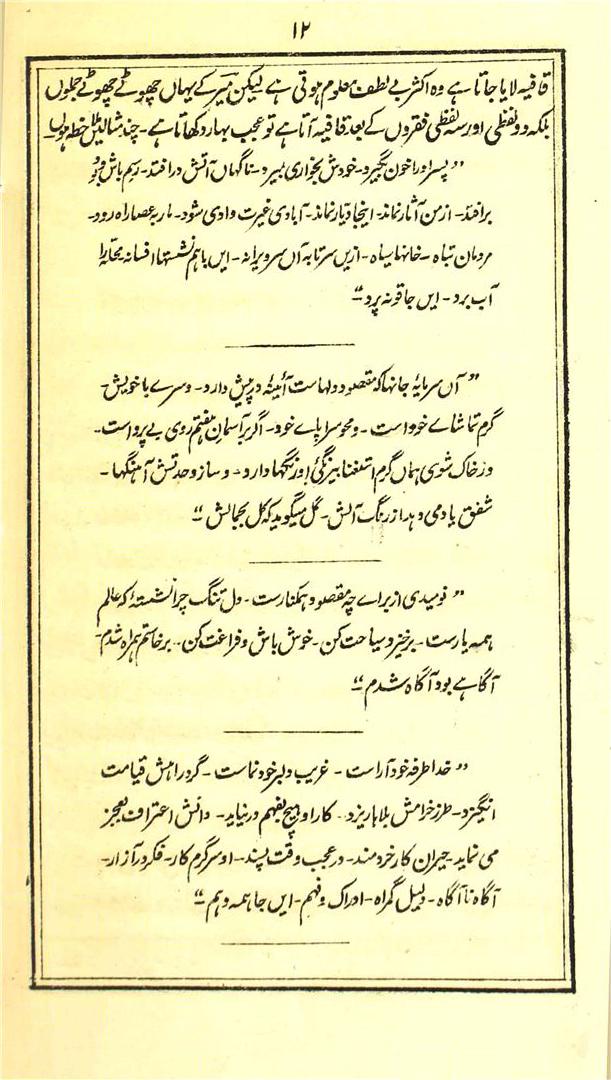 ۱۲
قافیہ لایا جاتا ہے وہ اکثر بے لطف معلوم ہوتی ہے لیکن میر کے یہاں چھوٹے چھوٹے جملوں
بلکہ دو لفظی اور سہ لفظی فقروں کے بعد قافیہ آتا ہے تو عجب بہار دکھاتا ہے۔ چند مثالیں ملاحظہ ہوں۔
”پسر اورا خون بگیرد۔ خودش بخواری بمیرد۔ ناگہاں آتش درافتد۔ رسم باش و بود
برافتد۔ از من آثار نماند۔ اینجا دیار نماند۔ آبادی غیرت وادی شود۔ مار بہ عصا راہ رود۔
مردمان تباہ۔ خانہا سیاہ۔ ازیں سر تا بہ آں سر ویرانہ۔ ایں باہم نشستہا افسانہ
آب برد۔ ایں جا قونہ پرد“
”آں سرمایۂ جانہا کہ مقصود دلہاست آئینۂ در پیش دارد۔ و سرے با خویش۔
گرم تماشاے خود است۔ و محو سراپاے خود۔ اگر بر آسمان ہفتم روی بے پرواست۔
ور خاک شوی ہماں گرم استغنا۔ بیرنگیٔ او رنگہا دارد۔ و ساز وحدتش آہنگہا۔
شفق یاد می دہد از رنگ آلش۔ گل میگوید کہ گل بجمالش“
”نومیدی از براے چہ مقصود ہمکنارست۔ دل تنگ چرا نشستۂ کہ عالم
ہمہ یارست۔ برخیز و سیاحت کن۔ خوش باش و فراغت کن۔ برخاستم ہمراہ شدم۔
آگاہے بود آگاہ شدم“
”خدا طرفہ خود آراست۔ غریب دلبر خودنماست۔ گرد راہش قیامت
انگیزد۔ طرز خرامش بلاہا ریزد۔ کار او ہیچ بفہم درنیاید۔ دانش اعتراف بعجز
می نماید۔ حیران کار خردمند۔ در عجب وقت پسند۔ او سرگرم کار۔ فکر در آزار۔
آگاہ ناآگاہ۔ دلیل گمراہ۔ ادراک و فہم۔ ایں جا ہمہ وہم“